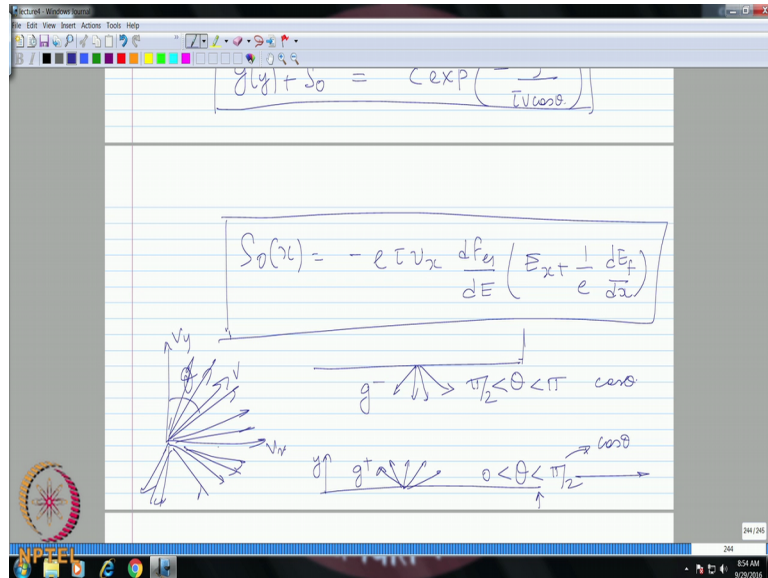 lecture4 - Windows Journal
File Edit View Insert Actions Tools Help
g(y) + S0 = C exp( - / τ v cosθ )
S0(x) = - e τ vx dFeq/dE ( Ex + 1/e dEf/dx )
Vy
θ
V
Vx
g- π/2 < θ < π cosθ
cosθ
y g+ 0 < θ < π/2
244/245
244
NPTEL
8:54 AM
9/29/2016